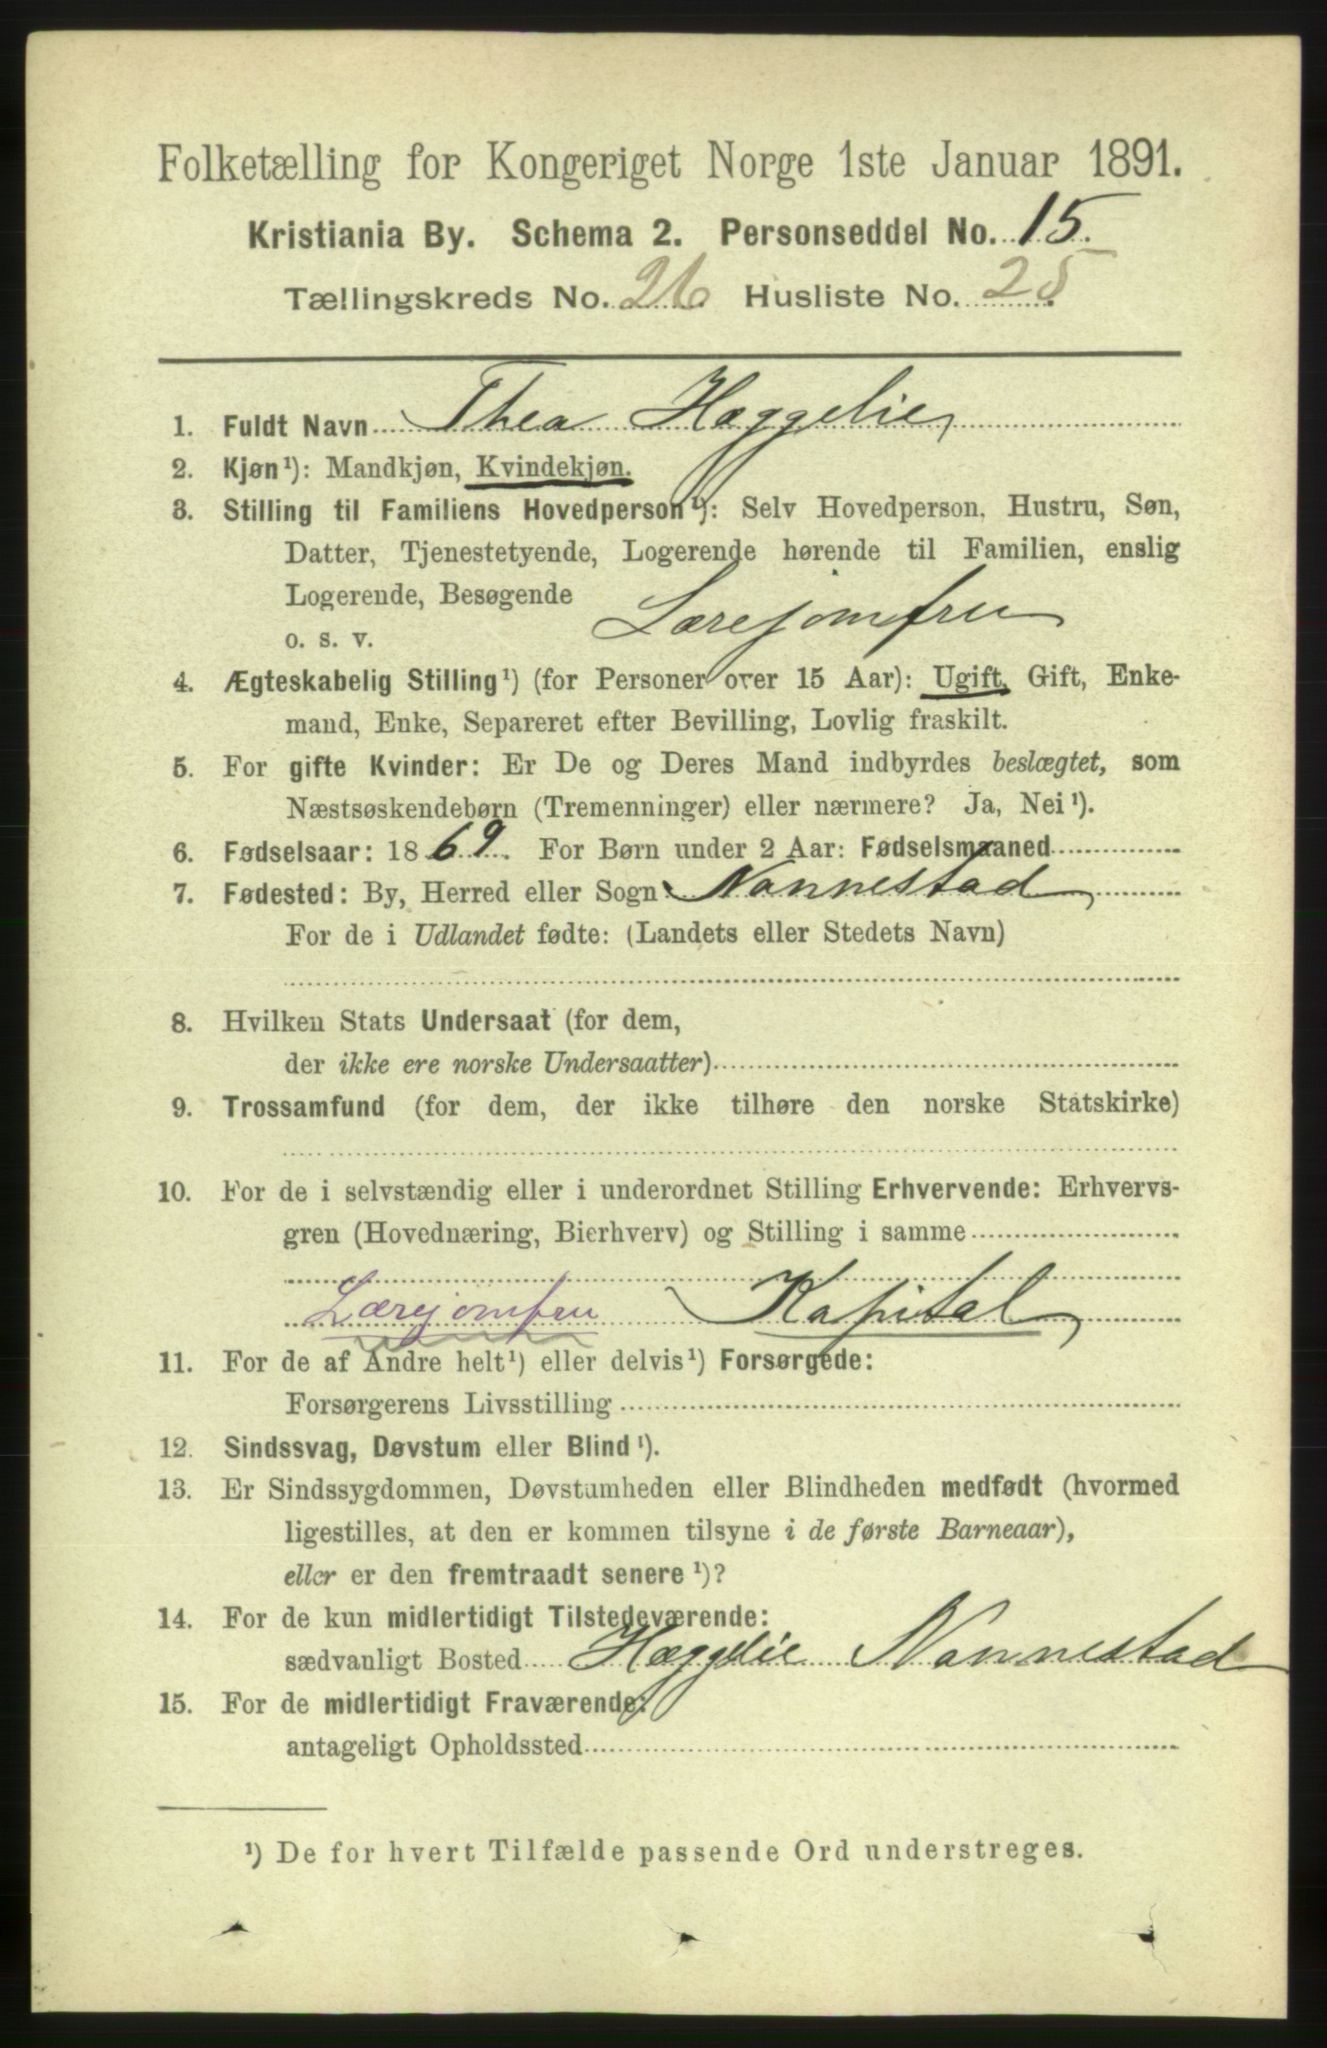 Folketælling for Kongeriget Norge 1ste Januar 1891.
Kristiania By. Schema 2. Personseddel No. 15.
Tællingskreds No. 26 Husliste No. 25.
1. Fuldt Navn Thea Hæggelie
2. Kjøn¹): Mandkjøn, Kvindekjøn.
3. Stilling til Familiens Hovedperson¹): Selv Hovedperson, Hustru, Søn,
Datter, Tjenestetyende, Logerende hørende til Familien, enslig
Logerende, Besøgende
o. s. v. Lærejomfru
4. Ægteskabelig Stilling¹) (for Personer over 15 Aar): Ugift, Gift, Enke-
mand, Enke, Separeret efter Bevilling, Lovlig fraskilt.
5. For gifte Kvinder: Er De og Deres Mand indbyrdes beslægtet, som
Næstsøskendebørn (Tremenninger) eller nærmere? Ja, Nei¹).
6. Fødselsaar: 1869. For Børn under 2 Aar: Fødselsmaaned
7. Fødested: By, Herred eller Sogn Nannestad
For de i Udlandet fødte: (Landets eller Stedets Navn)
8. Hvilken Stats Undersaat (for dem,
der ikke ere norske Undersaatter)
9. Trossamfund (for dem, der ikke tilhøre den norske Statskirke)
10. For de i selvstændig eller i underordnet Stilling Erhvervende: Erhvervs-
gren (Hovednæring, Bierhverv) og Stilling i samme
Lærejomfru Kapital
11. For de af Andre helt¹) eller delvis¹) Forsørgede:
Forsørgerens Livsstilling
12. Sindssvag, Døvstum eller Blind¹).
13. Er Sindssygdommen, Døvstumheden eller Blindheden medfødt (hvormed
ligestilles, at den er kommen tilsyne i de første Barneaar),
eller er den fremtraadt senere¹)?
14. For de kun midlertidigt Tilstedeværende:
sædvanligt Bosted Hæggelie Nannestad
15. For de midlertidigt Fraværende:
antageligt Opholdssted
¹) De for hvert Tilfælde passende Ord understreges.